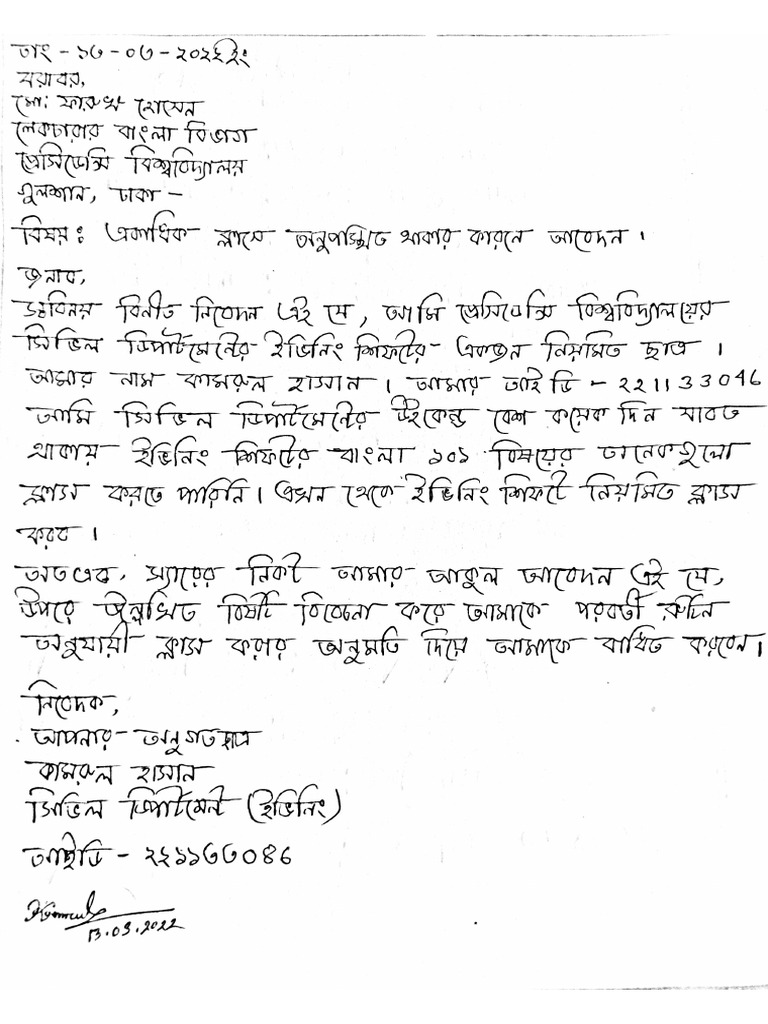 তাং - ১৩ - ০৩ - ২০২২ইং
বরাবর,
মো: ফারুখ হোসেন
লেকচারার বাংলা বিভাগ
প্রেসিডেন্সি বিশ্ববিদ্যালয়
গুলশান, ঢাকা -
বিষয়: একাধিক ক্লাসে অনুপস্থিত থাকার কারনে আবেদন।
জনাব,
সবিনয় বিনীত নিবেদন এই যে, আমি প্রেসিডেন্সি বিশ্ববিদ্যালয়ের
সিভিল ডিপার্টমেন্টের ইভিনিং শিফটের একজন নিয়মিত ছাত্র।
আমার নাম কামরুল হাসান। আমার আইডি - 221133046
আমি সিভিল ডিপার্টমেন্টের উইকেন্ড বেশ কয়েক দিন যাবত
থাকায় ইভিনিং শিফটের বাংলা ১০১ বিষয়ের অনেকগুলো
ক্লাস করতে পারিনি। এখন থেকে ইভিনিং শিফটে নিয়মিত ক্লাস
করব।
অতএব, স্যারের নিকট আমার আকুল আবেদন এই যে,
উপরে উল্লেখিত বিষটি বিবেচনা করে আমাকে পরবর্তী রুটিন
অনুযায়ী ক্লাস করার অনুমতি দিয়ে আমাকে বাধিত করবেন।
নিবেদক,
আপনার অনুগত ছাত্র
কামরুল হাসান
সিভিল ডিপার্টমেন্ট (ইভিনিং)
আইডি - ২২১১৩৩০৪৬
13.03.2022